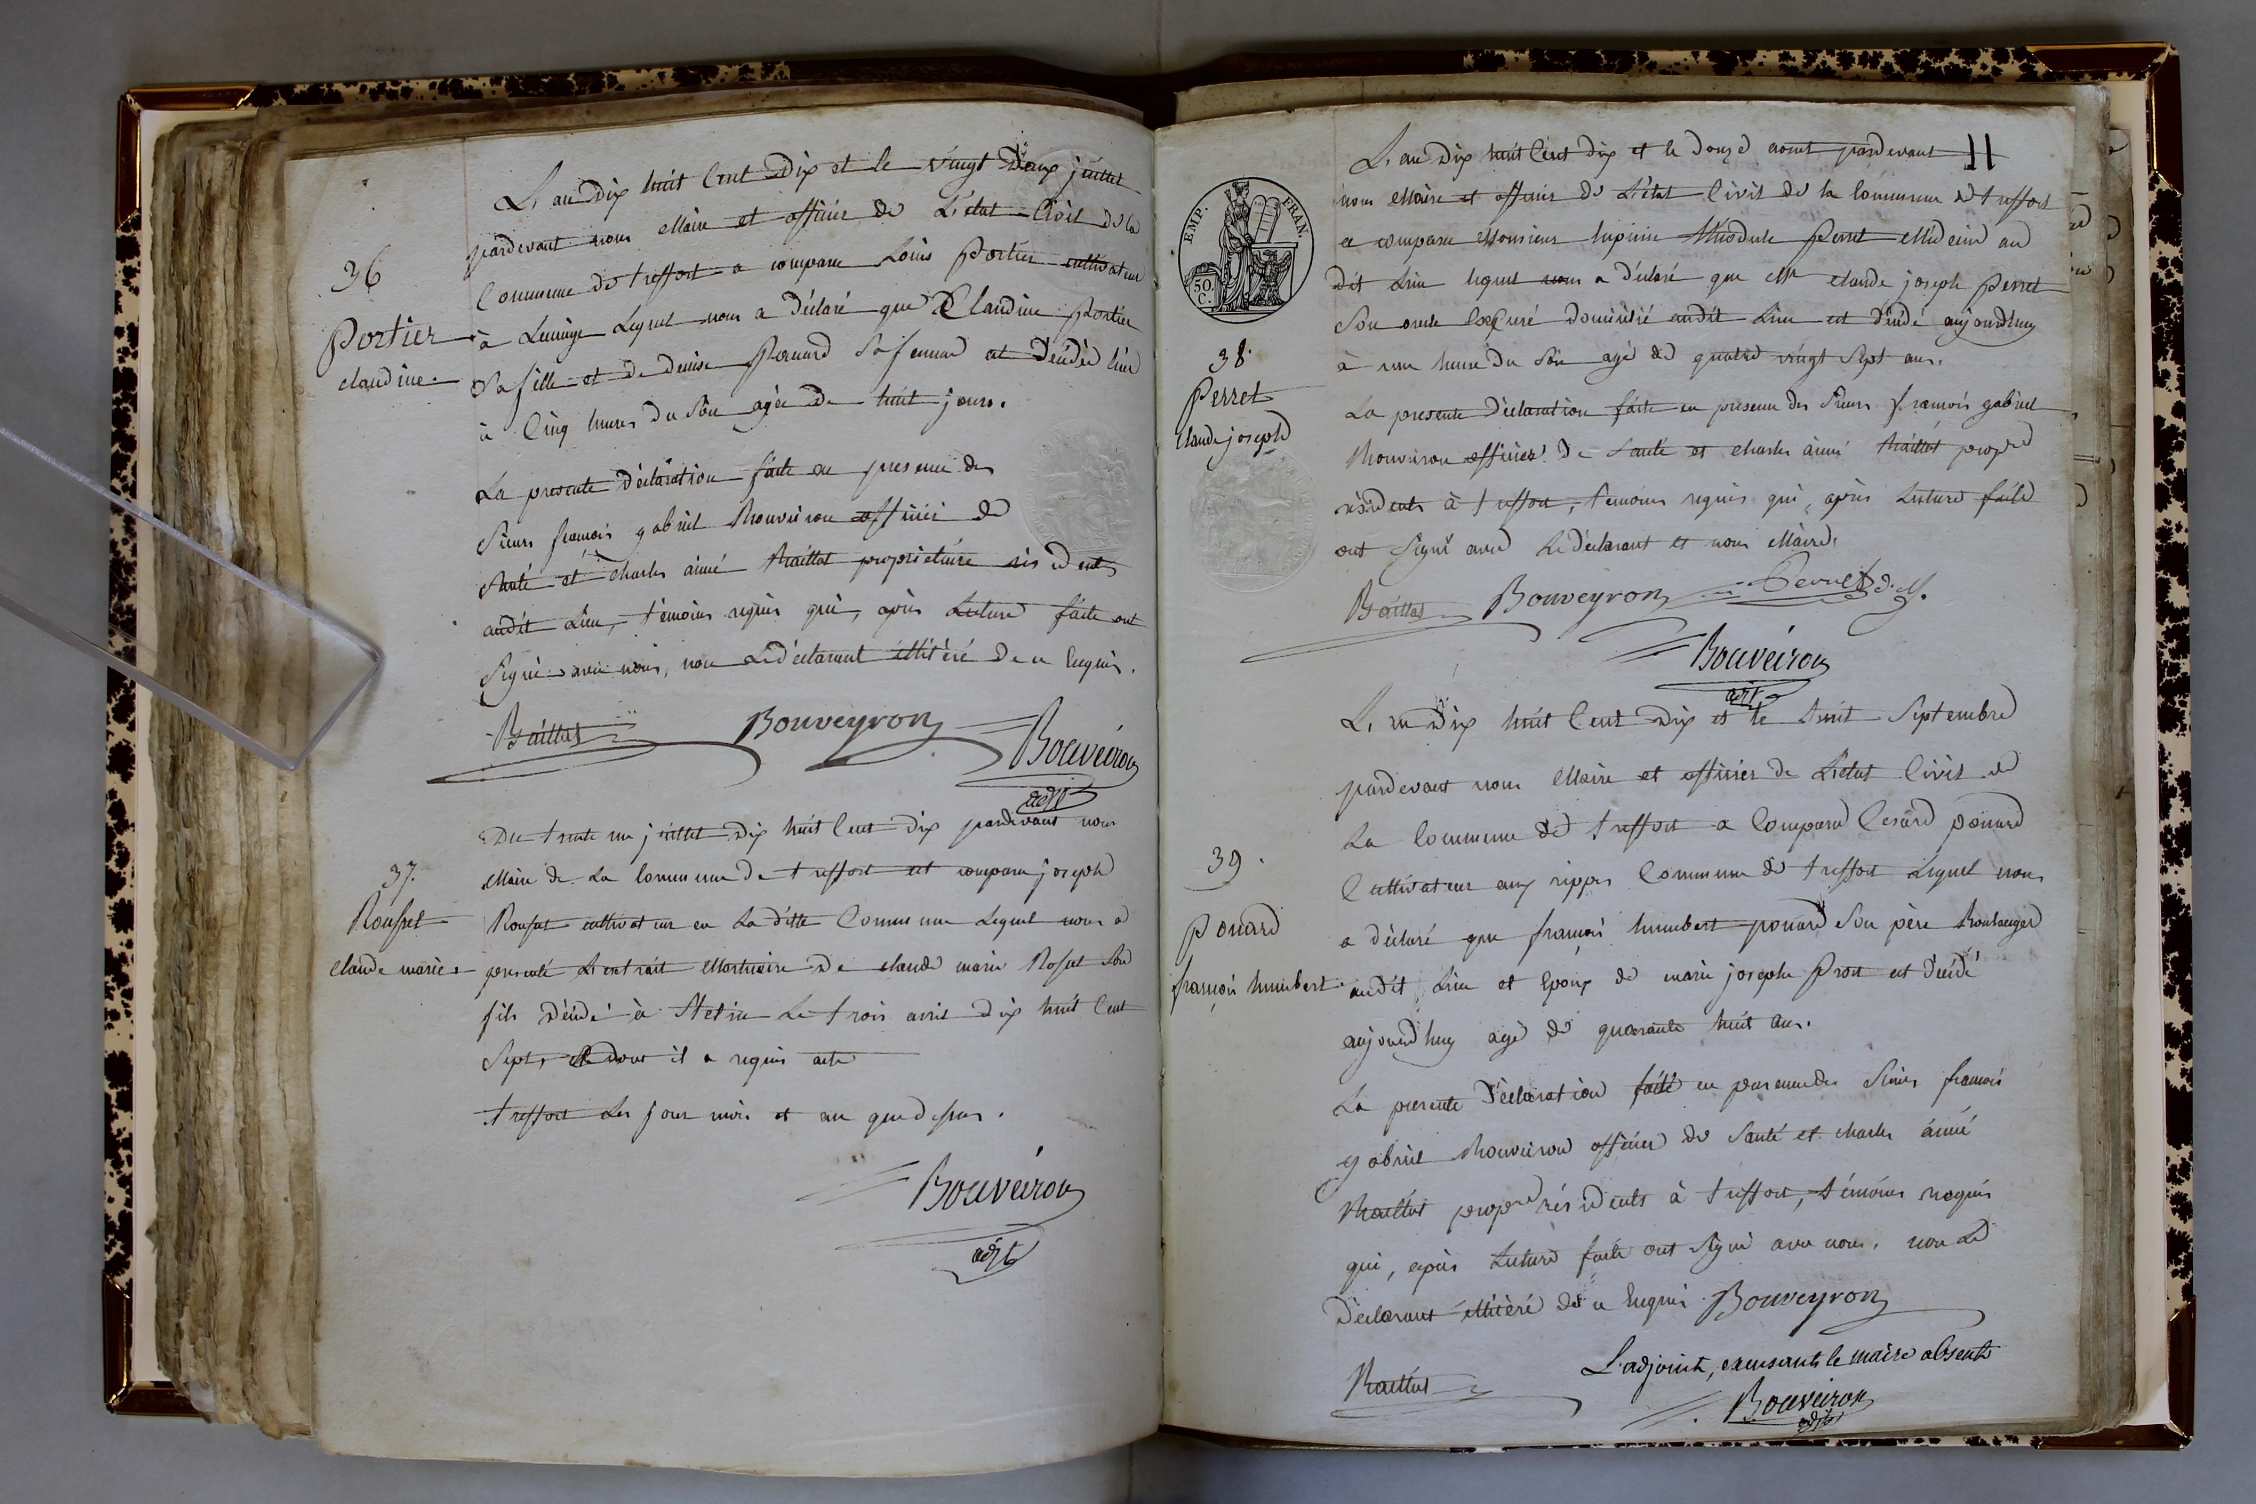 L'an Dix huit Cent Dix et le vingt Deux juillet
pardevant nous Maire et officier de L'état Civil de la
Commune de treffort a comparu Louis Portier cultivateur
à Lequel nous a déclaré que Claudine Portier
Sa fille et de denise Sa femme est décédée hier
à Cinq heures du Soir agée de huit jours.
La presente déclaration faite en presence des
Sieurs françois gabriel Bouveiron officier de
Santé et charles aimé Baillat proprietaire résidents
audit Lieu, témoins requis qui, après Lecture faite ont
Signé avec nous, non Le déclarant illitéré de ce Enquis.
Baillat Bouveyron
Bouveiron
adjt
36
Portier
claudine
Du trente un juillet Dix huit Cent Dix pardevant nous
Maire de La Commune de treffort est comparu joseph
Rousset cultivateur en La ditte Commune Lequel nous a
presenté L'extrait Mortuaire De claude marie Rosset Son
fils décédé à Stetin Le trois avril dix huit Cent
Sept, dont il a requis acte
treffort Les jour mois et an que dessus.
Bouveiron
adjt
37.
Rousset
claude marie
11
L'an Dix huit Cent dix et le douze aout pardevant
nous Maire et officier de L'état Civil de la Commune de treffort
a comparu Monsieur théodule Perret Médecin au
dit Lieu lequel nous a déclaré que Mr claude joseph Perret
Son oncle ex Curé domicilié audit Lieu est décédé aujourdhuy
à une heure du Soir agé de quatre vingt Sept ans.
La presente déclaration faite en presence des Sieurs françois gabriel
Bouveiron officier de Santé et charles aimé Baillat propre
résidents à treffort, témoins requis qui, après Lecture faite
ont Signé avec Le déclarant et nous Maire.
Baillat Bouveyron Perret d. M.
Bouveiron
adjt
EMP. FRAN.
50.
C.
38.
Perret
claude joseph
L'an Dix huit Cent Dix et le huit Septembre
pardevant nous Maire et officier de L'état Civil de
La Commune de treffort a Comparu Cesard ponard
Cultivateur aux rippes Commune de treffort Lequel nous
a déclaré que françois humbert ponard Son père boulanger
audit Lieu et Epoux de marie josephe Prost est décédé
aujourdhuy agé de quarante huit ans.
La presente déclaration faite en presence des Sieurs francois
gabriel Bouveiron officier de Santé et charles aimé
Baillat propre résidents à treffort, témoins requis
qui, après Lecture faite ont Signé avec nous, non Le
Déclarant illitéré de ce Enquis. Bouveyron
L'adjoint, exerçant le maire absent
Baillat
Bouveiron
adjt
39.
ponard
françois humbert